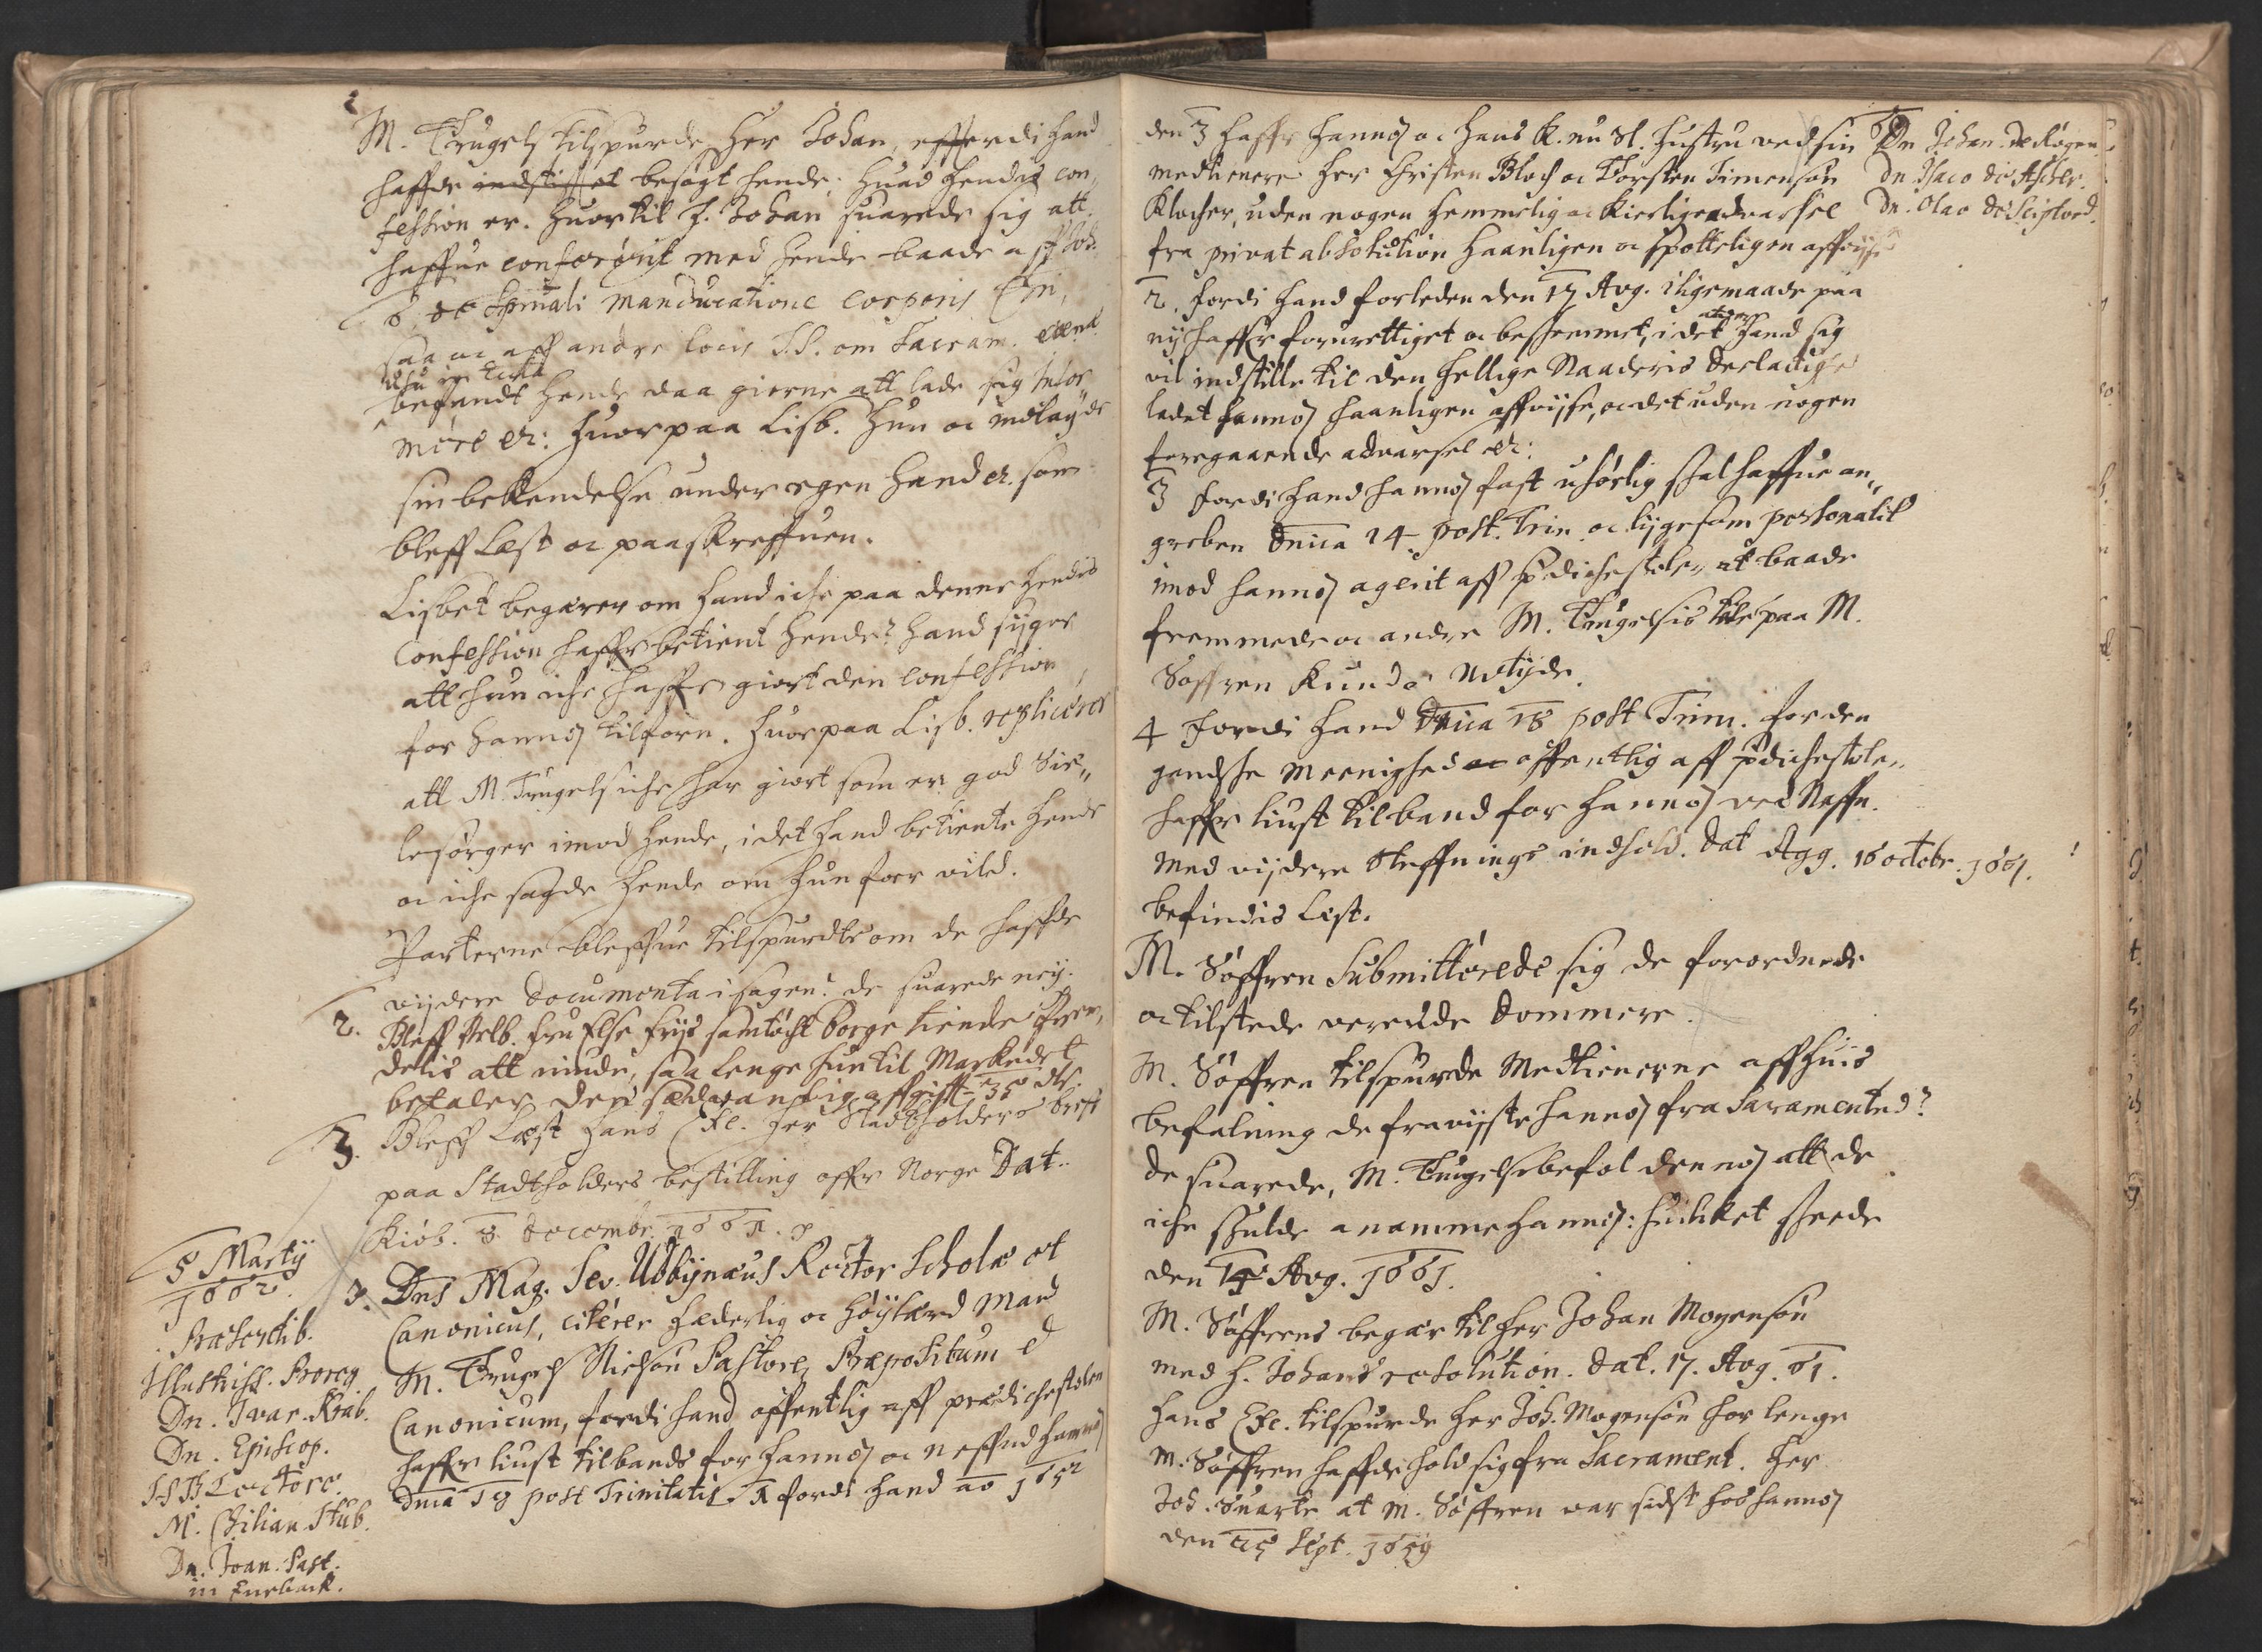 M. Trugels tilspurde Her Johan, effterdi hand
haffde indstillet besøgt hende, huad hendis con,
fession er. Huortil H. Johan suarede sig att
haffue conforørit med hende baade aff Joh.
6. de Spirituali manducatione corporis Christi,
saa oc aff andre locis S.S. om Sacram.
befandt hende daa gierne att lade sig infor,,
mere etc: Huorpaa Lisb. Hun oc indlagde
sin bekendelse under egen Hand etc. som
bleff Læst oc paaskreffuen.
Lisbet begærer om hand iche paa denne hendis
Confession haffr betient hende? Hand siger
att hun iche haffr giort den confession
for hannoz tilforn. Huorpaa Lisb. replicerer
att M. Trugels iche har giort som en god Sie,,
lesørger imod hende, i det hand betiente hende
oc iche sagde hende om hun foer vild.
Parterne bleffue tilspurdte om de haffde
vijdere Documenta i sagen? de suarede neij.
2. Bleff Velb. Fru Else Friis samtøcht Borge tiende frem,
delis att niude, saa lenge hun til Markedet
betaler den sædvanlig affgifft 35 dlr.
3. Bleff Læst Hans Exl. Her Stadtholders breff
paa Stadtholders bestilling offr Norge Dat.
Kiøb. 3 Decembr. 1661.
5 Martij
1662.
Præsentib.
Illustriss. Proreg.
Dn. Iver Krab.
Dn. Episcop.
Lectore.
M. Chilian Stub.
Dn. Joan. Past.
in Eneback.
3. Dns Mag. Sev. Ubbijnæus Rector Scholæ et
Canonicus, citerer Hæderlig oc Høijlærd Mand
M. Trugels Nielsøn Pastore, Præpositum et
Canonicum, fordi hand offentlig aff prædichestolen
haffr liust til bands for hannoz oc neffnd hannoz
Dnica 18 post Trinitatis. 1 fordi hand ao 165
den 3 haffr hannoz oc hans K. nu Sl. Hustru ved sin
medtienere Her Christen Bloch oc Torsten Simensøn
Klocher, uden nogen hemmelig oc kierlig advarsel
fra privat absolution haanligen oc spotteligen affvijst
Dn Johan. de Røgen.
Dn Isaco de Ascher.
Dn. Olao de Sciptved.
2. fordi hand forleden den 17 Aug. ligemaade paa
nij haffr forurettiget oc beskemmet, i det at der hand sig
vil indstille til den hellige Naaderis Deelactige
ladet hannoz haanligen affvijse, oc det uden nogen
foregaaende advarsel etc:
3 fordi hand hannoz fast uhørlig skal haffue an,,
greben Dnica 14 post. Trin. oc lijgesom personalit
imod hannoz agerit aff predichestolen, at baade
fremmede oc andre M. Trugelsis tale paa M.
Søffren kunde udtijde.
4 Fordi hand Dnica 18 post Trin. for den
gandske Meenighed offentlig aff predichestolen
haffr liust til band for hannoz ved Naffn.
Med vijdere steffnings indhold. Dat Agg. 16 octobr. 1661.
befindis Læst.
M. Søffren Submitterede sig de forordnede
oc tilstede verende Dommere.
M. Søffren tilspurde Medtienerne aff huis
befalning de fraviiste hannoz fra Sacramentet?
de suarede, M. Trugels befol dennoz att de
iche skulde anamme hannoz: huilket skeede
den 14 Aug. 1661.
M. Søffrens begær til Her Johan Mogensøn
med H. Johans resolution. Dat. 17. Aug. 61.
Hans Exc. tilspurde Her Joh. Mogensøn hor lenge
M. Søffren haffde hold sig fra Sacrament. Her
Joh. Suarte at M. Søffren var sidst hos hannoz
den 25 Sept. 1659